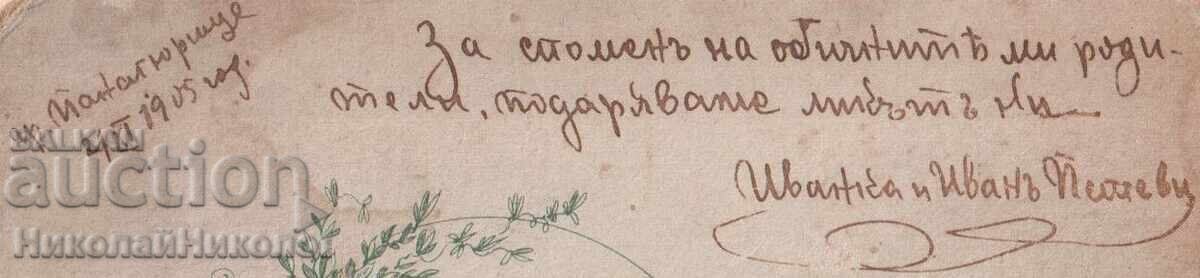 гр. Панагюрище
2/III 1905 год.
За споменъ на обичнитѣ ми роди-
тели, подаряваме ликътъ ни
Иванка и Иванъ Петеви
BALKAN
auction
НиколайНиколов